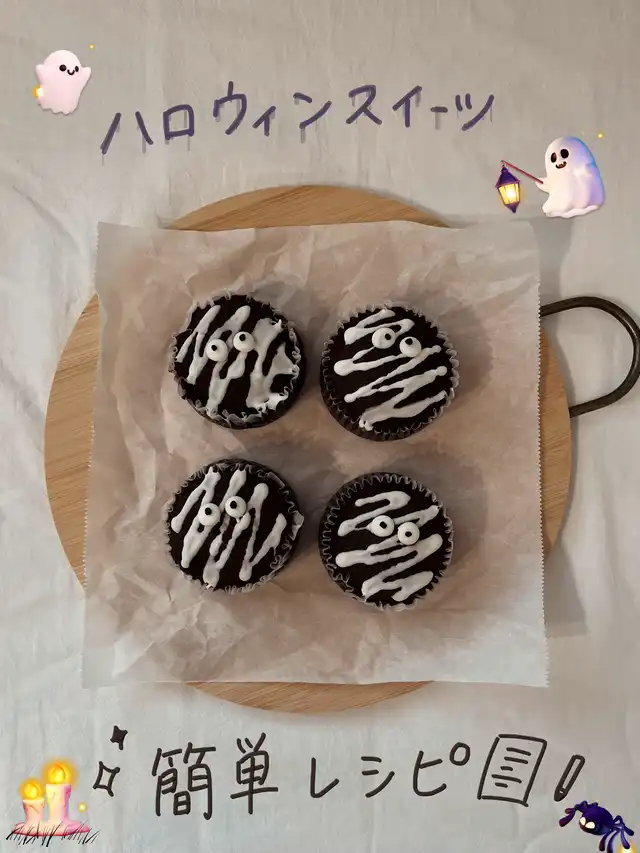 ハロウィンスイーツ
簡単レシピ